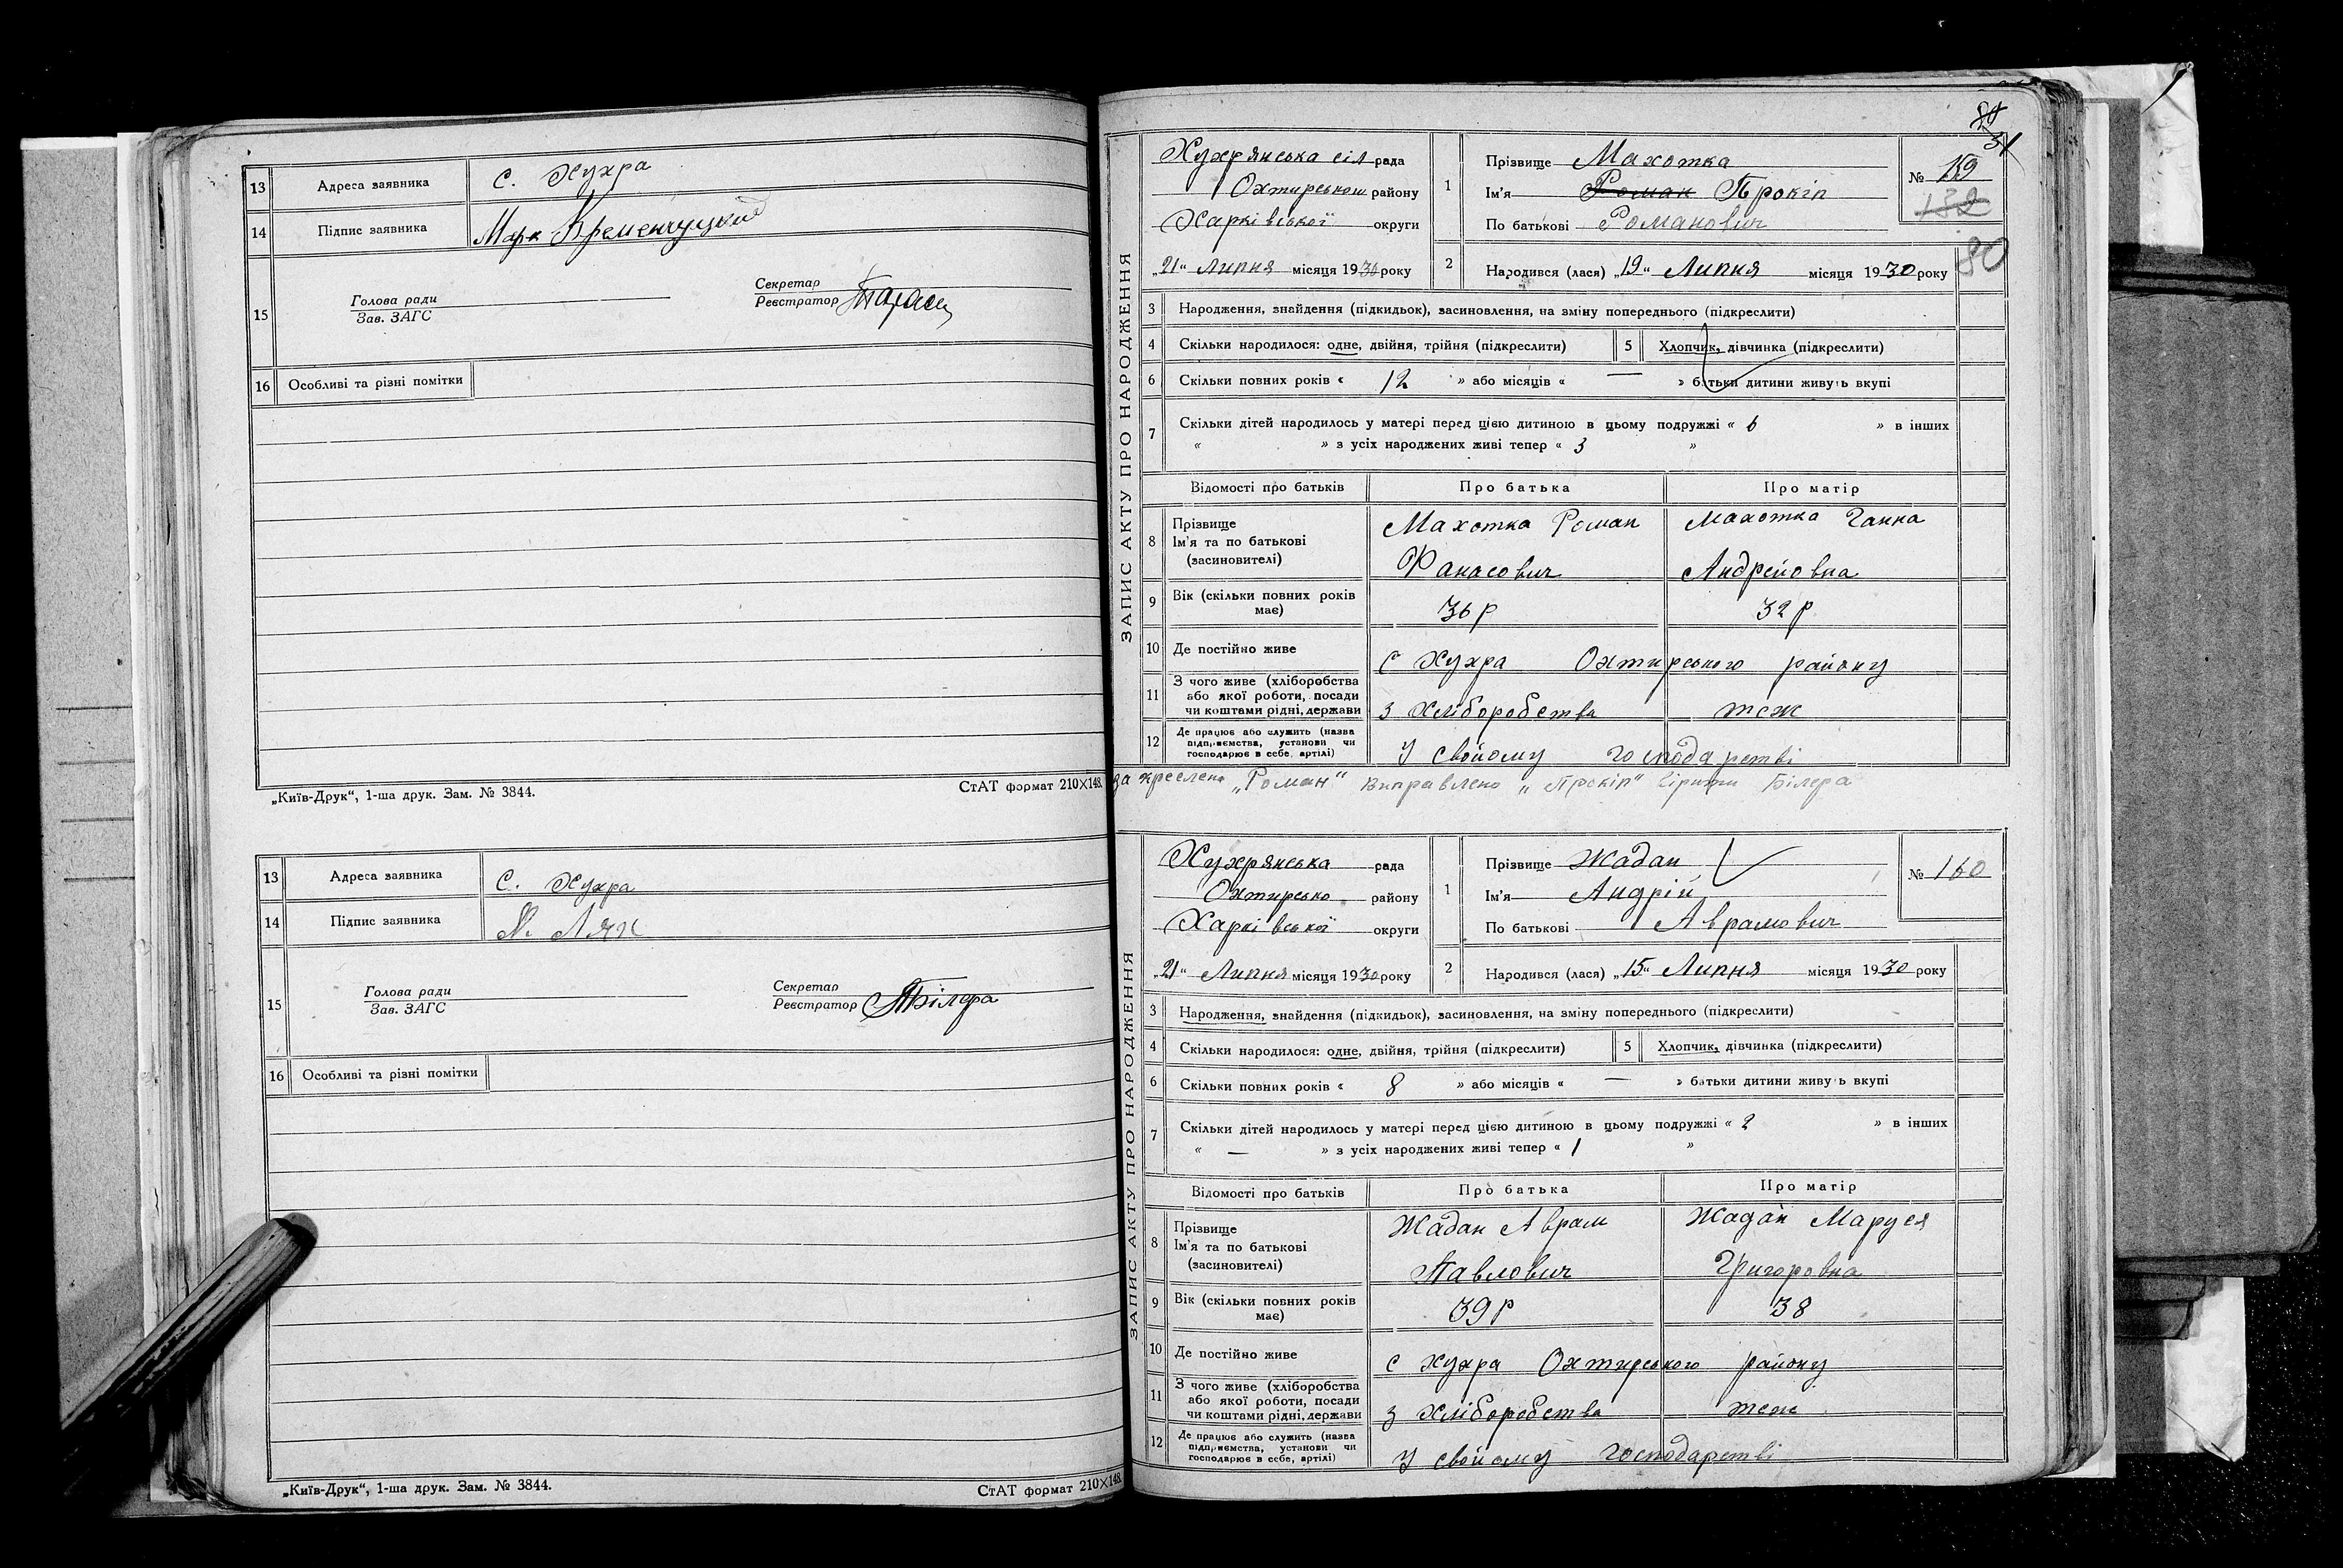 13 Адреса заявника с. Хухра
14 Підпис заявника Марк Кременчуцкий
15 Голова ради
Зав. ЗАГС
Секретар
Реєстратор
16 Особливі та різні помітки
„Київ-Друк“, 1-ша друк. Зам. № 3844.
СтАТ формат 210×148.
13 Адреса заявника с. Хухра
14 Підпис заявника
15 Голова ради
Зав. ЗАГС
Секретар
Реєстратор Білера
16 Особливі та різні помітки
„Київ-Друк“, 1-ша друк. Зам. № 3844.
СтАТ формат 210×148.
31
ЗАПИС АКТУ ПРО НАРОДЖЕННЯ
Хухрянська сіл рада
Охтирського району
Харківської округи
„21“ Липня місяця 1930 року
1 Прізвище Махотка
Ім'я Роман Прокіп
По батькові Романович
№ 159
132
80
2 Народився (лася) „19“ Липня місяця 1930 року
3 Народження, знайдення (підкидьок), засиновлення, на зміну попереднього (підкреслити)
4 Скільки народилося: одне, двійня, трійня (підкреслити) 5 Хлопчик, дівчинка (підкреслити)
6 Скільки повних років « 12 » або місяців « — » батьки дитини живуть вкупі
7 Скільки дітей народилось у матері перед цією дитиною в цьому подружжі « 6 » в інших
« » з усіх народжених живі тепер « 3 »
Відомості про батьків Про батька Про матір
8 Прізвище
Ім'я та по батькові
(засиновителі)
Махотка Роман
Фанасович
Махотка Ганна
Андрейовна
9 Вік (скільки повних років має) 36 р 32 р
10 Де постійно живе с Хухра Охтирського району
11 З чого живе (хліборобства
або якої роботи, посади
чи коштами рідні, держави
з хліборобства теж
12 Де працює або служить (назва
підприємства, установи чи
господарює в себе, артілі)
У свойому господаретві
закреслено „Роман“ виправлено „Прокіп“ вірити Білера
ЗАПИС АКТУ ПРО НАРОДЖЕННЯ
Хухрянська рада
Охтирсько району
Харківської округи
„21“ Липня місяця 1930 року
1 Прізвище Жадан
Ім'я Андрій
По батькові Аврамович
№ 160
2 Народився (лася) „15“ Липня місяця 1930 року
3 Народження, знайдення (підкидьок), засиновлення, на зміну попереднього (підкреслити)
4 Скільки народилося: одне, двійня, трійня (підкреслити) 5 Хлопчик, дівчинка (підкреслити)
6 Скільки повних років « 8 » або місяців « — » батьки дитини живуть вкупі
7 Скільки дітей народилось у матері перед цією дитиною в цьому подружжі « 2 » в інших
« — » з усіх народжених живі тепер « 1 »
Відомості про батьків Про батька Про матір
8 Прізвище
Ім'я та по батькові
(засиновителі)
Жадан Аврам
Павлович
Жадан Маруся
Григоровна
9 Вік (скільки повних років має) 39 р 38
10 Де постійно живе с Хухра Охтирського району
11 З чого живе (хліборобства
або якої роботи, посади
чи коштами рідні, держави
з хліборобства теж
12 Де працює або служить (назва
підприємства, установи чи
господарює в себе, артілі)
У свойому господаретві